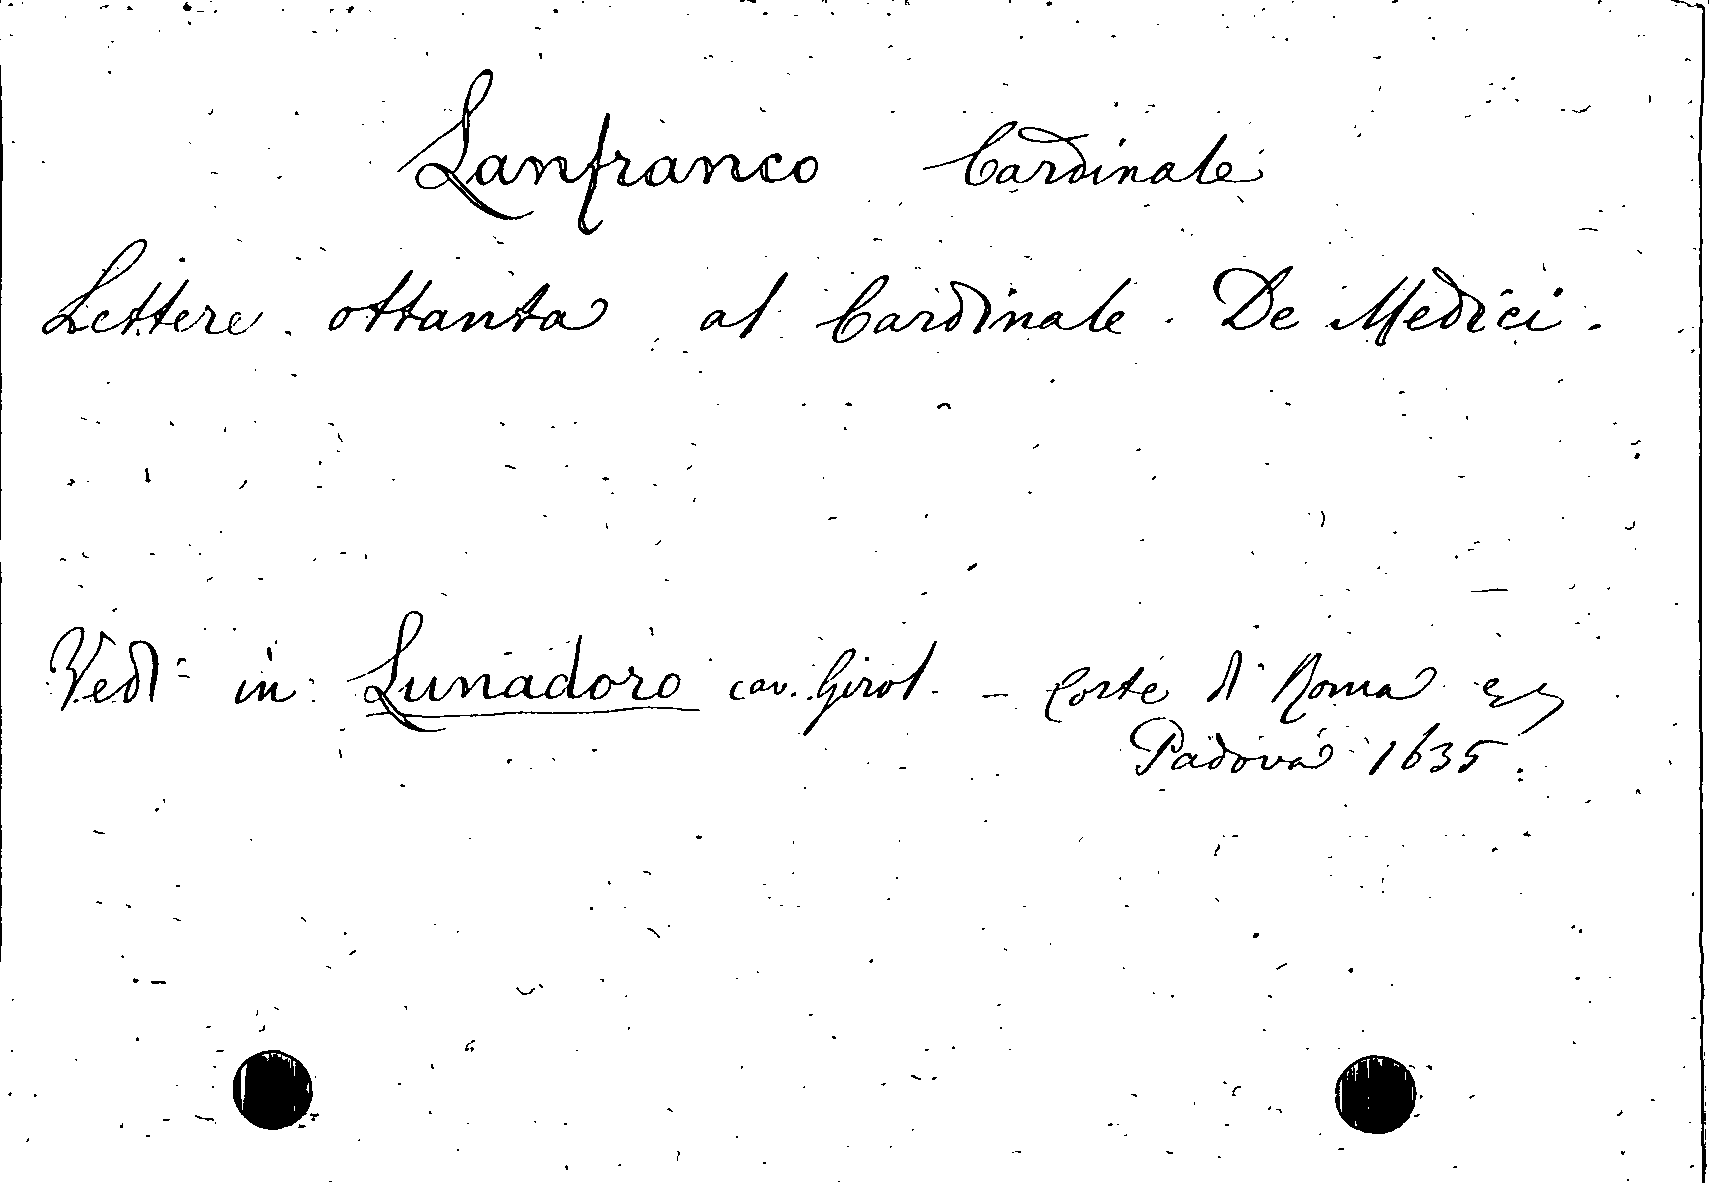 Lanfranco Cardinale
Lettere ottanta al Cardinale De Medici.
Vedi in Lunadoro cav. Girol. - Corte di Roma
Padova 1635.